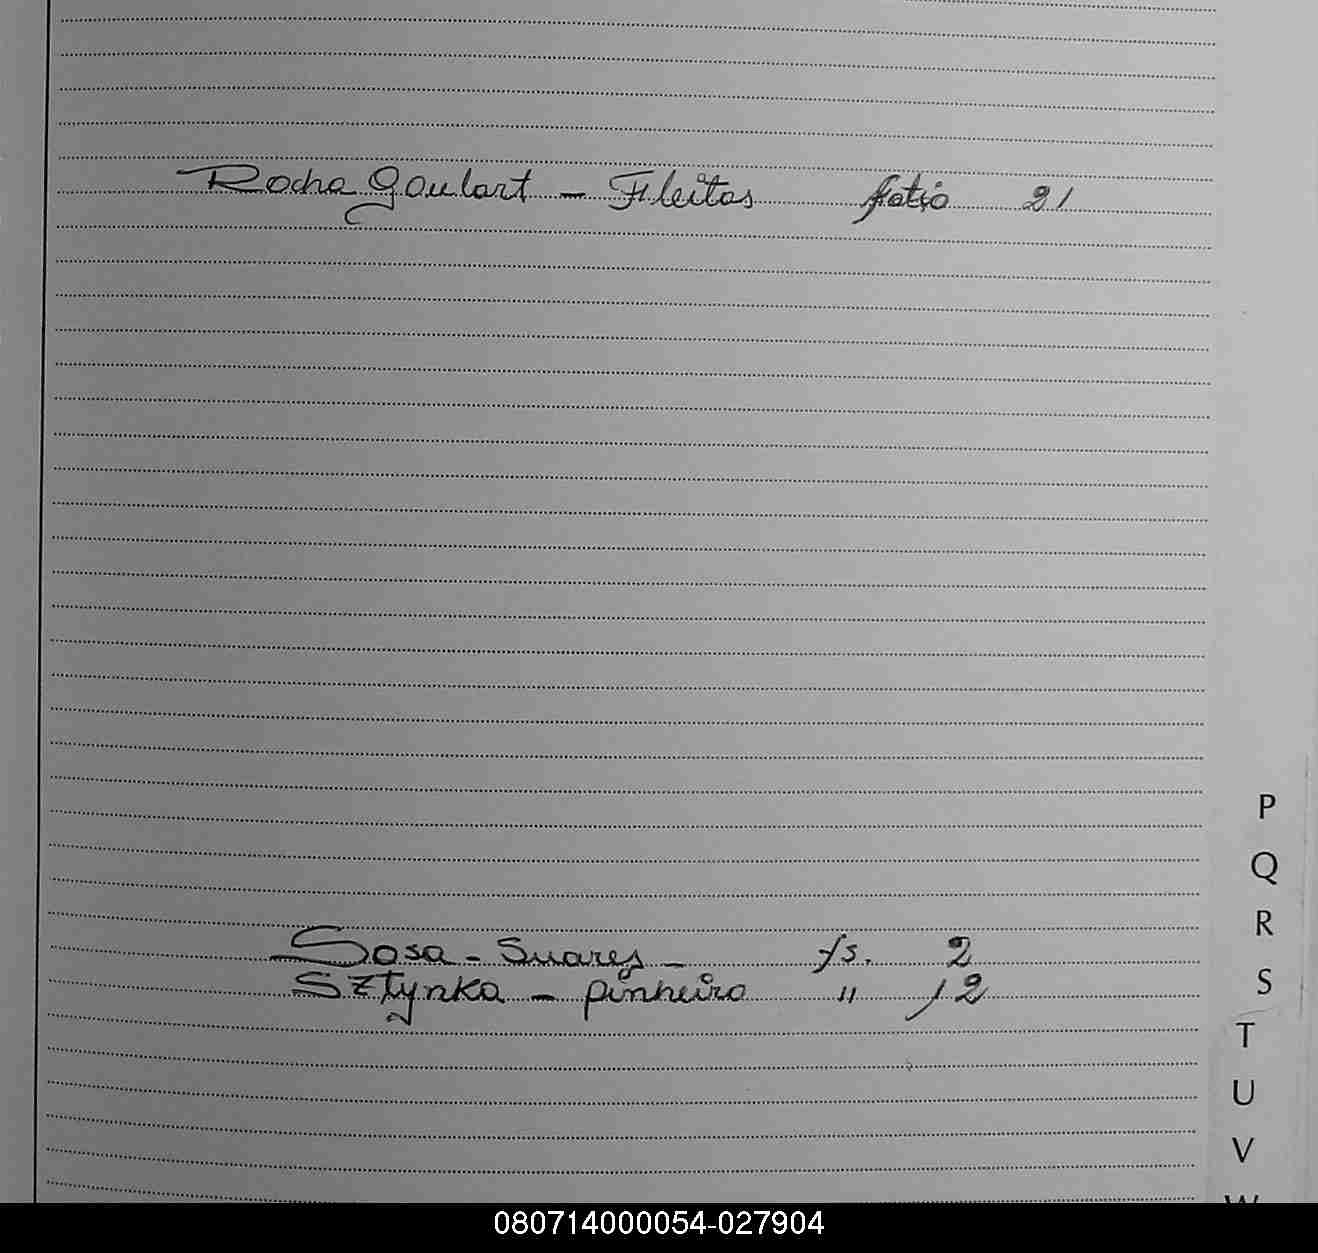 Rocha Goulart - Fleitas folio 21
Sosa - Suares - fs. 2
Sztynka - pinheiro " 12
P
Q
R
S
T
U
V
W
080714000054-027904